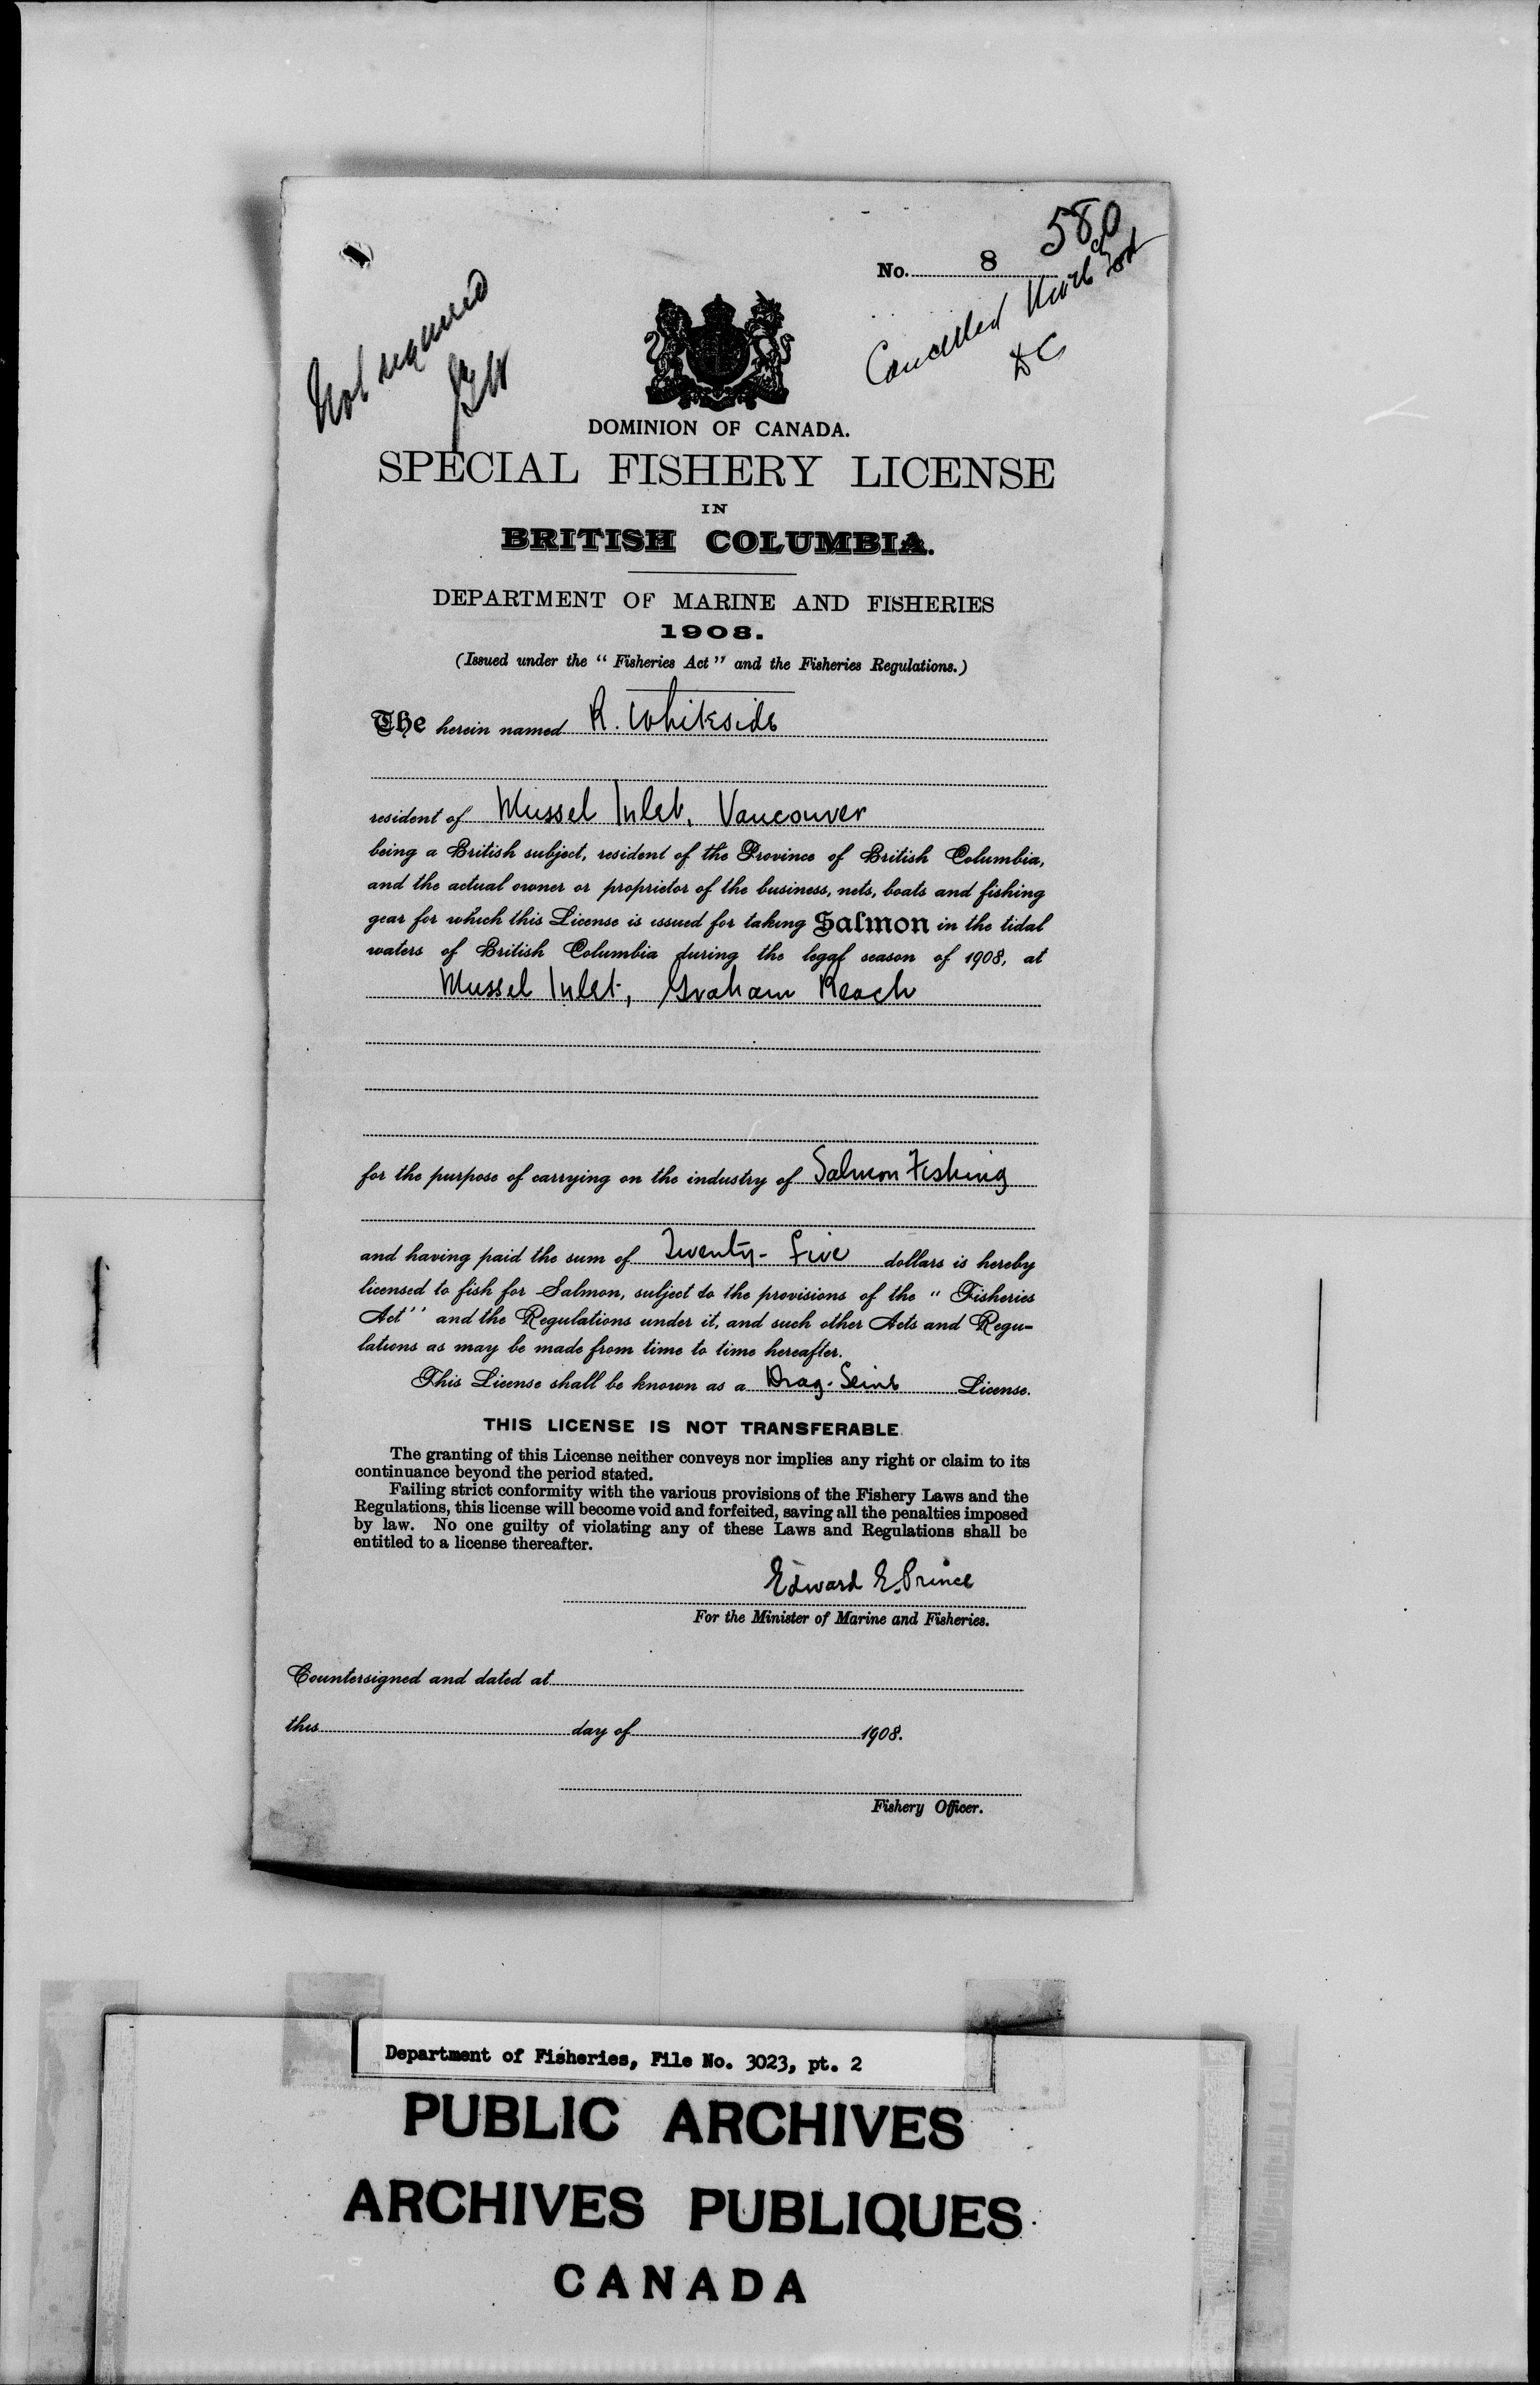 580
No. 8
Cancelled
DC
Not required
DOMINION OF CANADA.
SPECIAL FISHERY LICENSE
IN
BRITISH COLUMBIA.
DEPARTMENT OF MARINE AND FISHERIES
1908.
(Issued under the “ Fisheries Act ” and the Fisheries Regulations.)
The herein named R. Whiteside
resident of Mussel Inlet, Vancouver
being a British subject, resident of the Province of British Columbia,
and the actual owner or proprietor of the business, nets, boats and fishing
gear for which this License is issued for taking Salmon in the tidal
waters of British Columbia during the legal season of 1908, at
Mussel Inlet, Graham Reach
for the purpose of carrying on the industry of Salmon Fishing
and having paid the sum of Twenty-five dollars is hereby
licensed to fish for Salmon, subject to the provisions of the “ Fisheries
Act ” and the Regulations under it, and such other Acts and Regu-
lations as may be made from time to time hereafter.
This License shall be known as a Drag-Seine License.
THIS LICENSE IS NOT TRANSFERABLE.
The granting of this License neither conveys nor implies any right or claim to its
continuance beyond the period stated.
Failing strict conformity with the various provisions of the Fishery Laws and the
Regulations, this license will become void and forfeited, saving all the penalties imposed
by law. No one guilty of violating any of these Laws and Regulations shall be
entitled to a license thereafter.
Edward E. Prince
For the Minister of Marine and Fisheries.
Countersigned and dated at
this day of 1908.
Fishery Officer.
Department of Fisheries, File No. 3023, pt. 2
PUBLIC ARCHIVES
ARCHIVES PUBLIQUES
CANADA